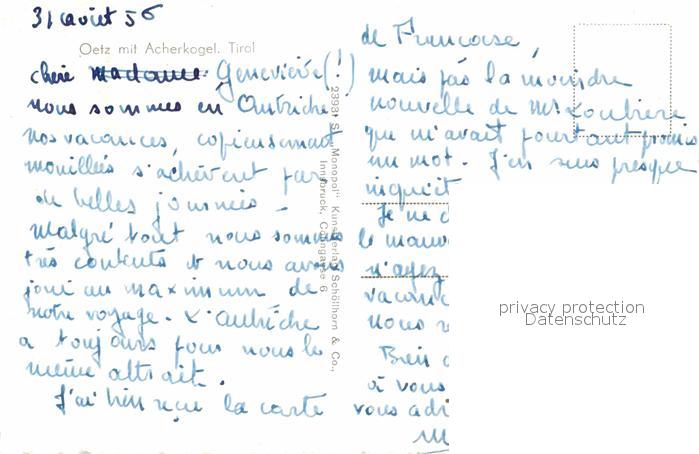 31 aout 56
Oetz mit Acherkogel. Tirol
chère madame Geneviève (!)
nous sommes en Autriche
nos vacances, copieusement
mouillées s'achèvent par
de belles journées –
malgré tout nous sommes
très contents & nous avons
joui au maximum de
notre voyage. L'Autriche
a toujours pour nous le
même attrait.
J'ai bien reçu la carte
de Françoise,
mais pas la moindre
nouvelle de Mr Loubière
qui m'avait pourtant promis
un mot. J'en suis presque
inquièt
Je ne
le mauv
n'ayez
vacanc
nous
Bien
à vous
vous adr
M
2398 St „Monopol" Kunstverlag Schöllhorn & Co.,
Innsbruck, 6
privacy protection
Datenschutz